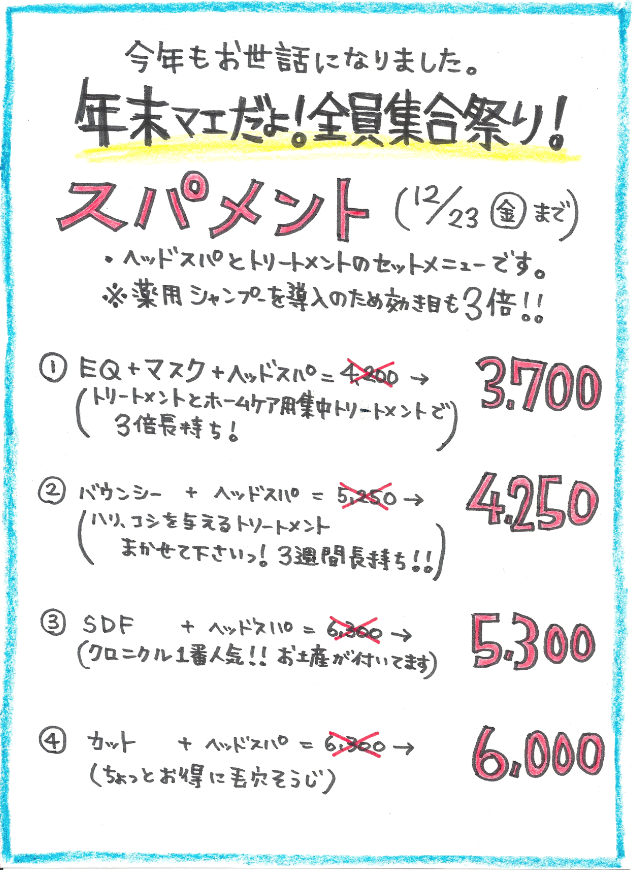 今年もお世話になりました。
年末マエだよ!全員集合祭り!
スパメント (12/23 金 まで)
・ヘッドスパとトリートメントのセットメニューです。
※薬用シャンプーを導入のため効き目も3倍!!
① EQ+マスク+ヘッドスパ = 4,200 → 3.700
(トリートメントとホームケア用集中トリートメントで
3倍長持ち!)
② バウンシー + ヘッドスパ = 5,250 → 4.250
(ハリ、コシを与えるトリートメント
まかせて下さいっ! 3週間長持ち!!)
③ SDF + ヘッドスパ = 6,300 → 5.300
(クロニクル1番人気!! お土産が付いてます)
④ カット + ヘッドスパ = 6,300 → 6.000
(ちょっとお得に毛穴そうじ)